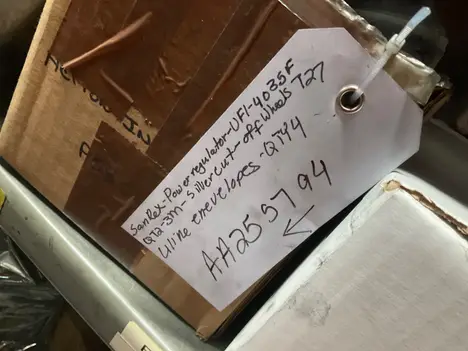 SanRex-Powerregulator-UF1-4035F
QT2-3m-Silvercut-off wheels T27
Uline enevelopes-QTY4
AA255794